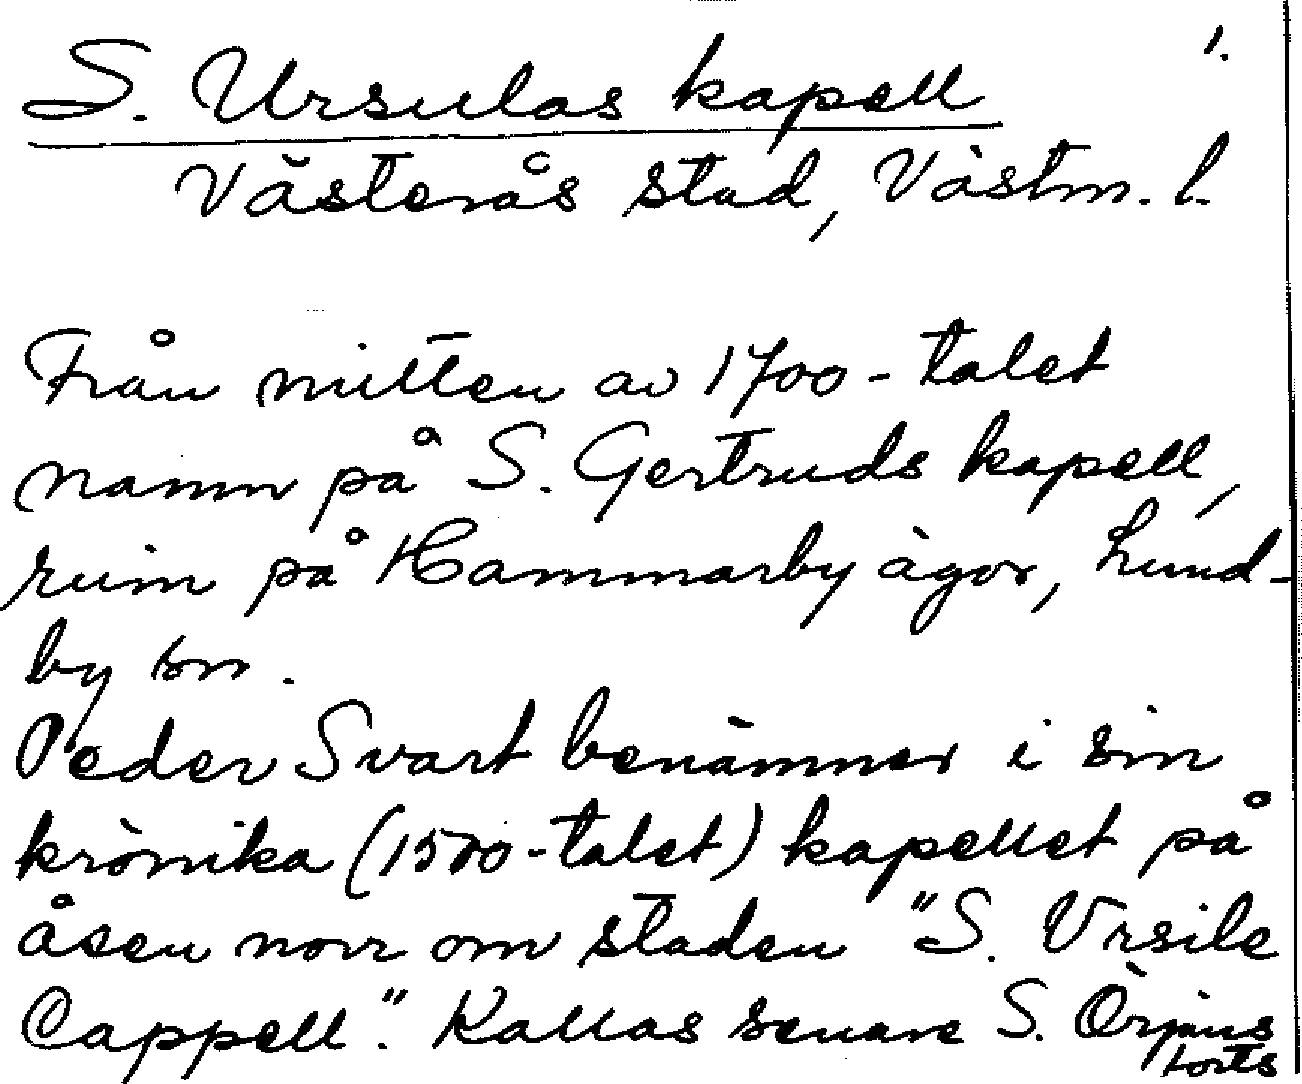 1.
S. Ursulas kapell
Västerås stad, Västm. l.
Från mitten av 1700-talet
namn på S. Gertruds kapell,
ruin på Hammarby ägor, Lund-
by sn.
Peder Svart benämner i sin
krönika (1500-talet) kapellet på
åsen norr om staden "S. Vrsile
Cappell". Kallas senare S. Örjans
forts